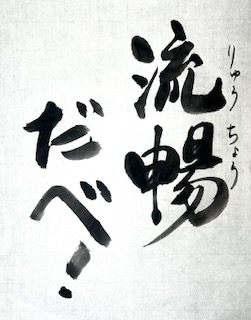 りゅうちょう
流暢
だべ!